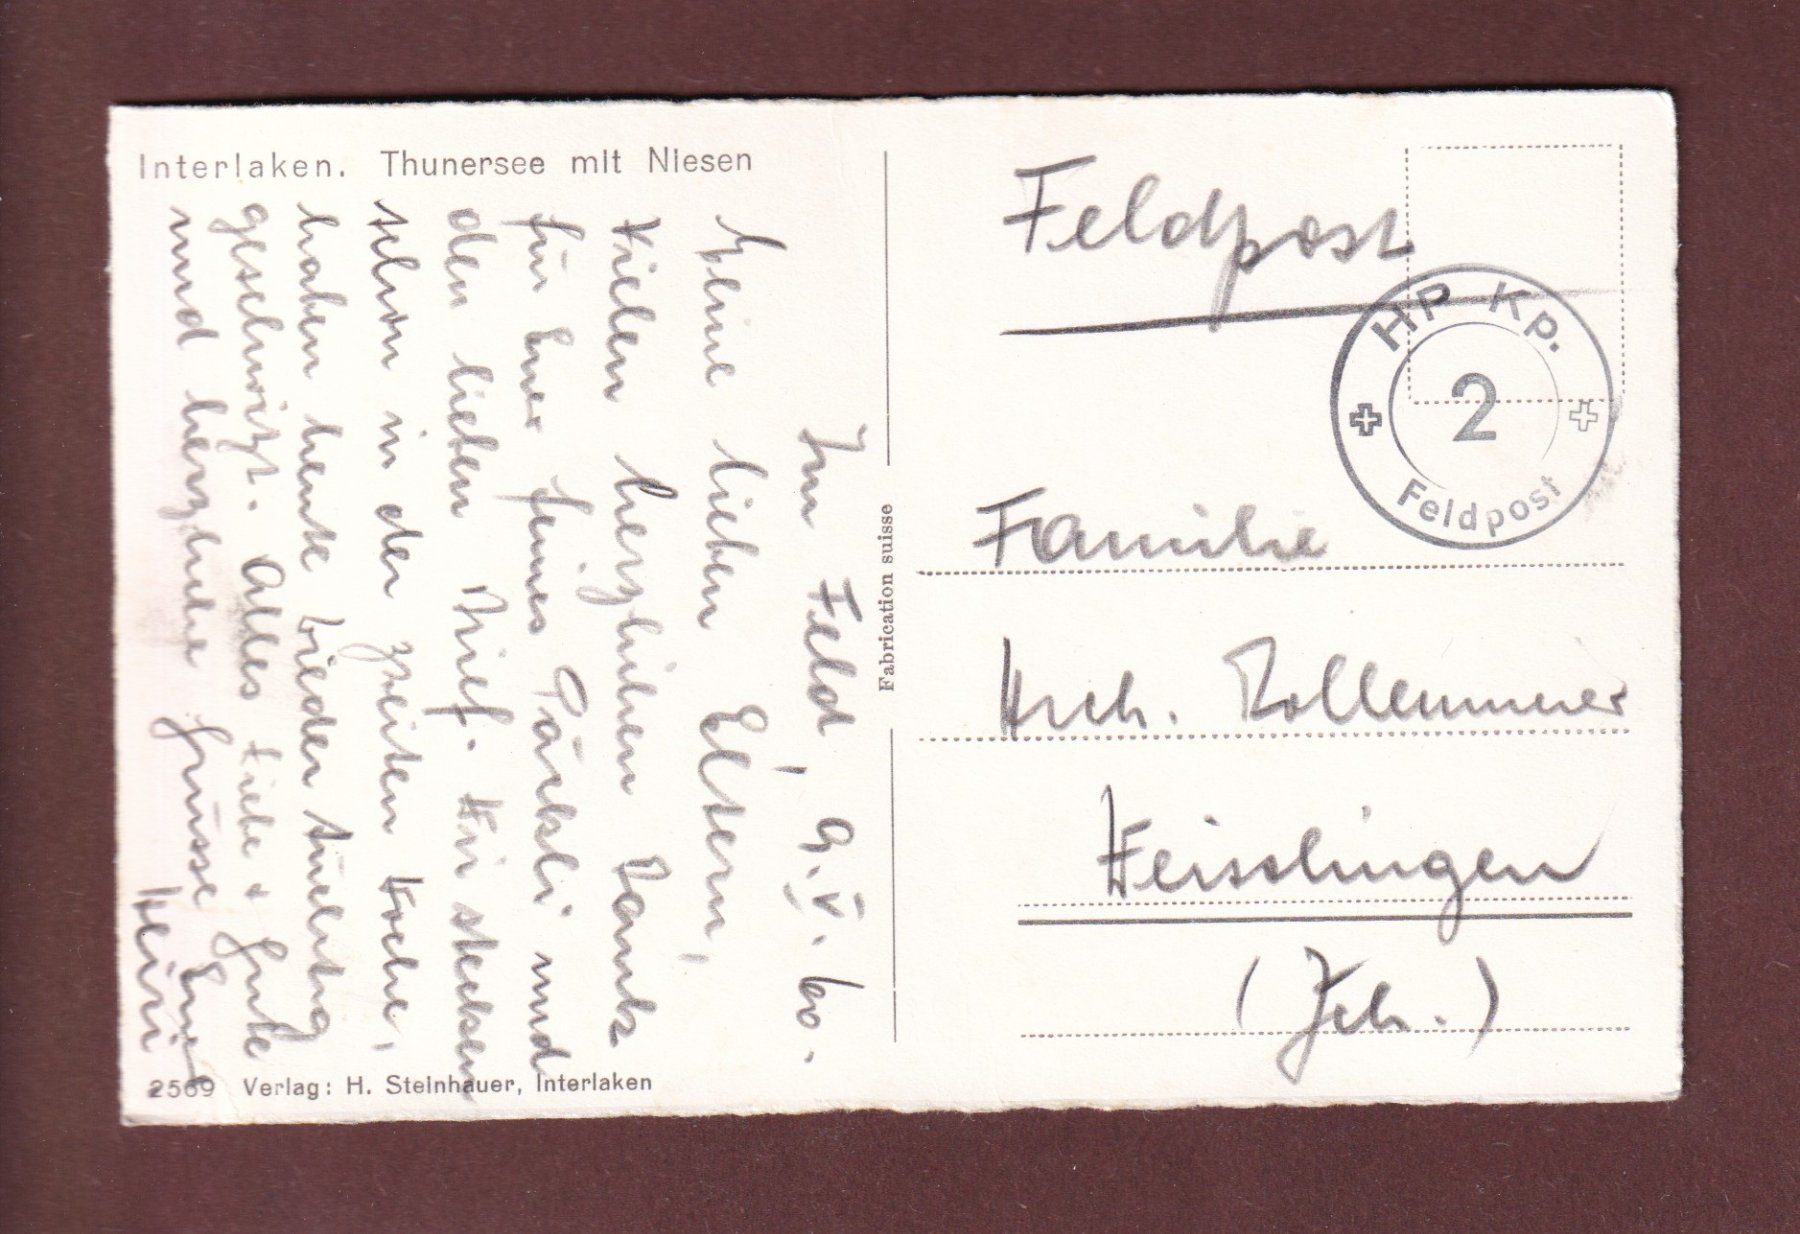 Interlaken. Thunersee mit Niesen
Im Feld, 9. V. 60.
Meine lieben Eltern,
Vielen herzlichen Dank
für Euer feines Päckli und
den lieben Brief. Wir stecken
schon in der zweiten Woche,
haben heute wieder tüchtig
geschwitzt. Alles Liebe + Gute
und herzliche Grüsse Euer
Heiri
2569 Verlag: H. Steinhauer, Interlaken
Fabrication suisse
Feldpost
HP Kp.
2
Feldpost
Familie
Hrch. Bollenmeier
Weisslingen
(Zch.)